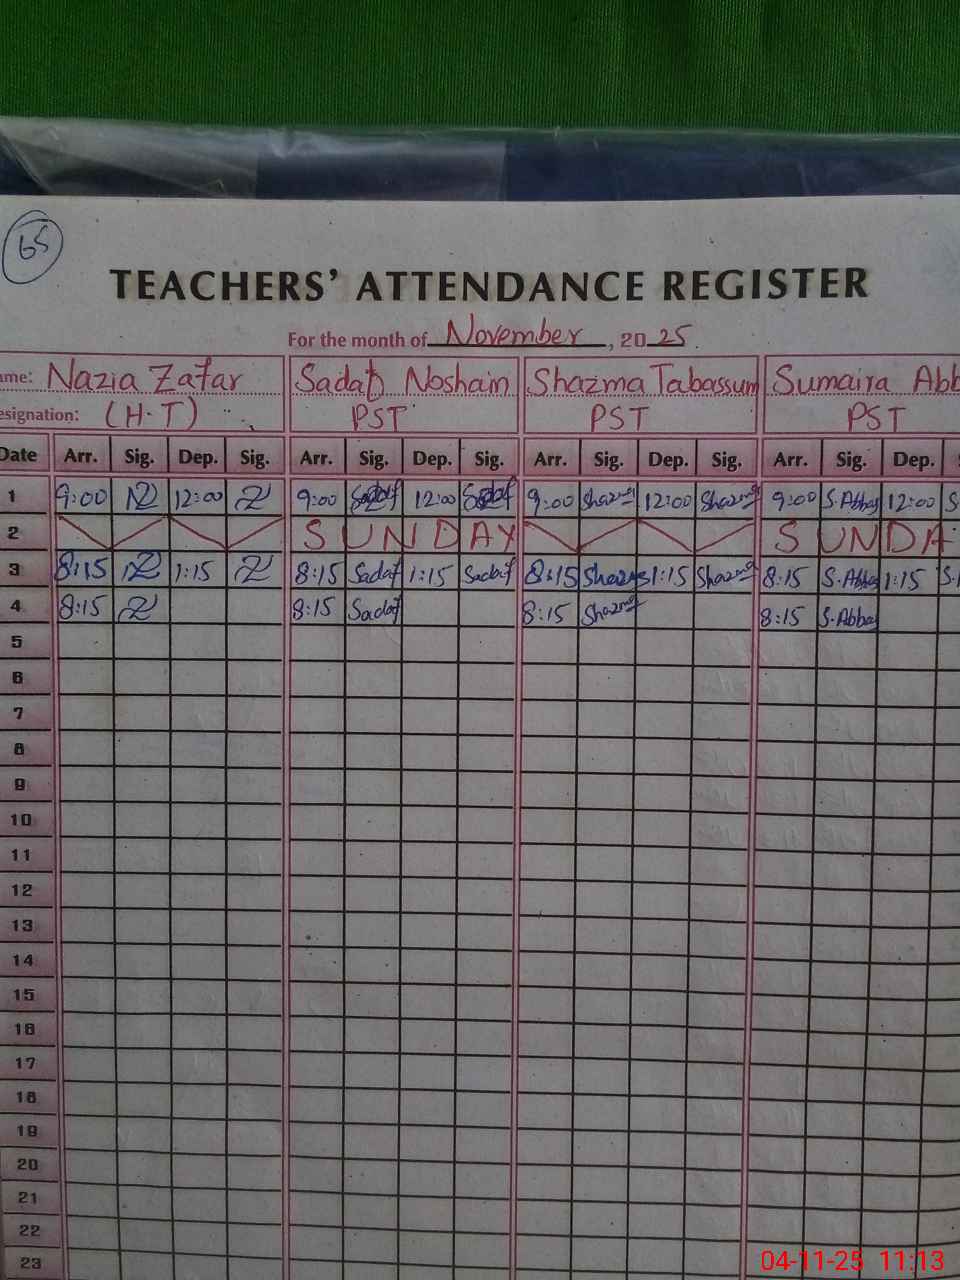 65
TEACHERS' ATTENDANCE REGISTER
For the month of November, 2025
ame: Nazia Zafar Sadaf Noshain Shazma Tabassum Sumaira Abb
esignation: (H.T) PST PST PST
Date Arr. Sig. Dep. Sig. Arr. Sig. Dep. Sig. Arr. Sig. Dep. Sig. Arr. Sig. Dep. S
1 9:00 NZ 12:00 Z 9:00 Sadaf 12:00 Sadaf 9:00 Shazma 12:00 Shazma 9:00 S.Abbas 12:00 S
2 SUNDAY SUNDA
3 8:15 NZ 1:15 Z 8:15 Sadaf 1:15 Sadaf 8:15 Shazma 1:15 Shazma 8:15 S.Abbas 1:15 S.
4 8:15 Z 8:15 Sadaf 8:15 Shazma 8:15 S.Abbas
5
6
7
8
9
10
11
12
13
14
15
16
17
18
19
20
21
22
23
04-11-25 11:13